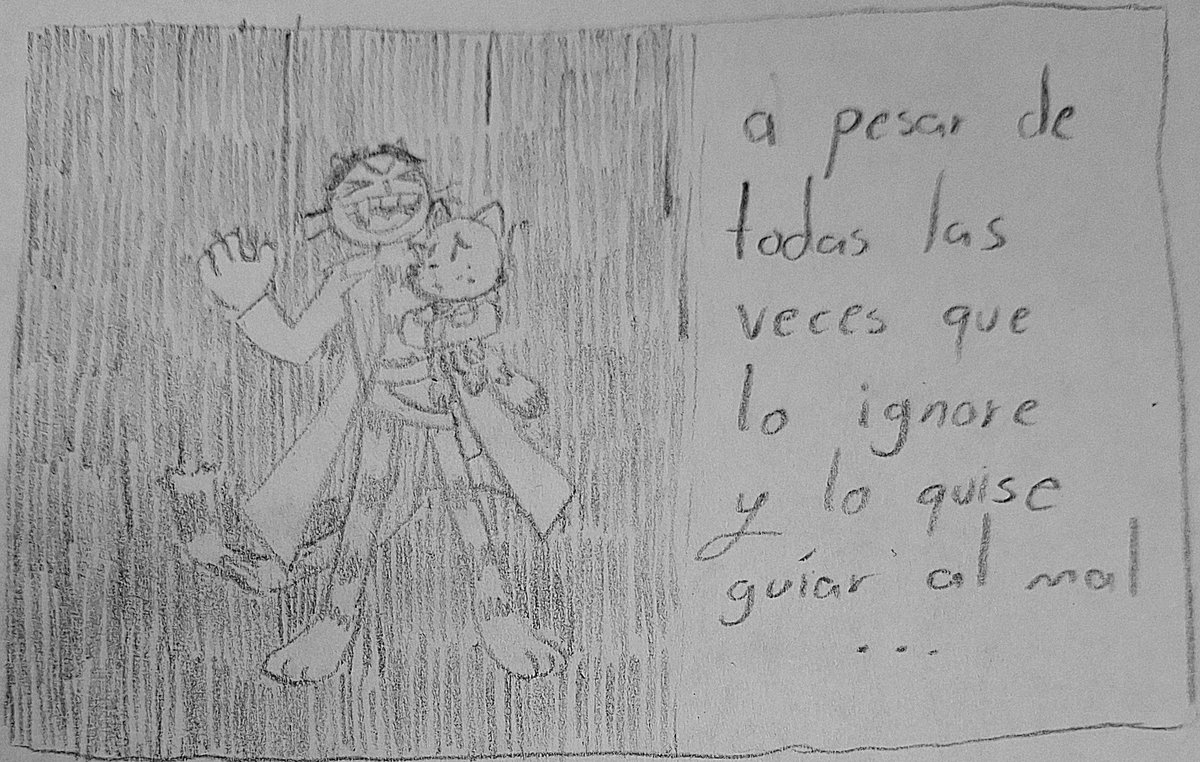 a pesar de
todas las
veces que
lo ignore
y lo quise
guíar al mal
...